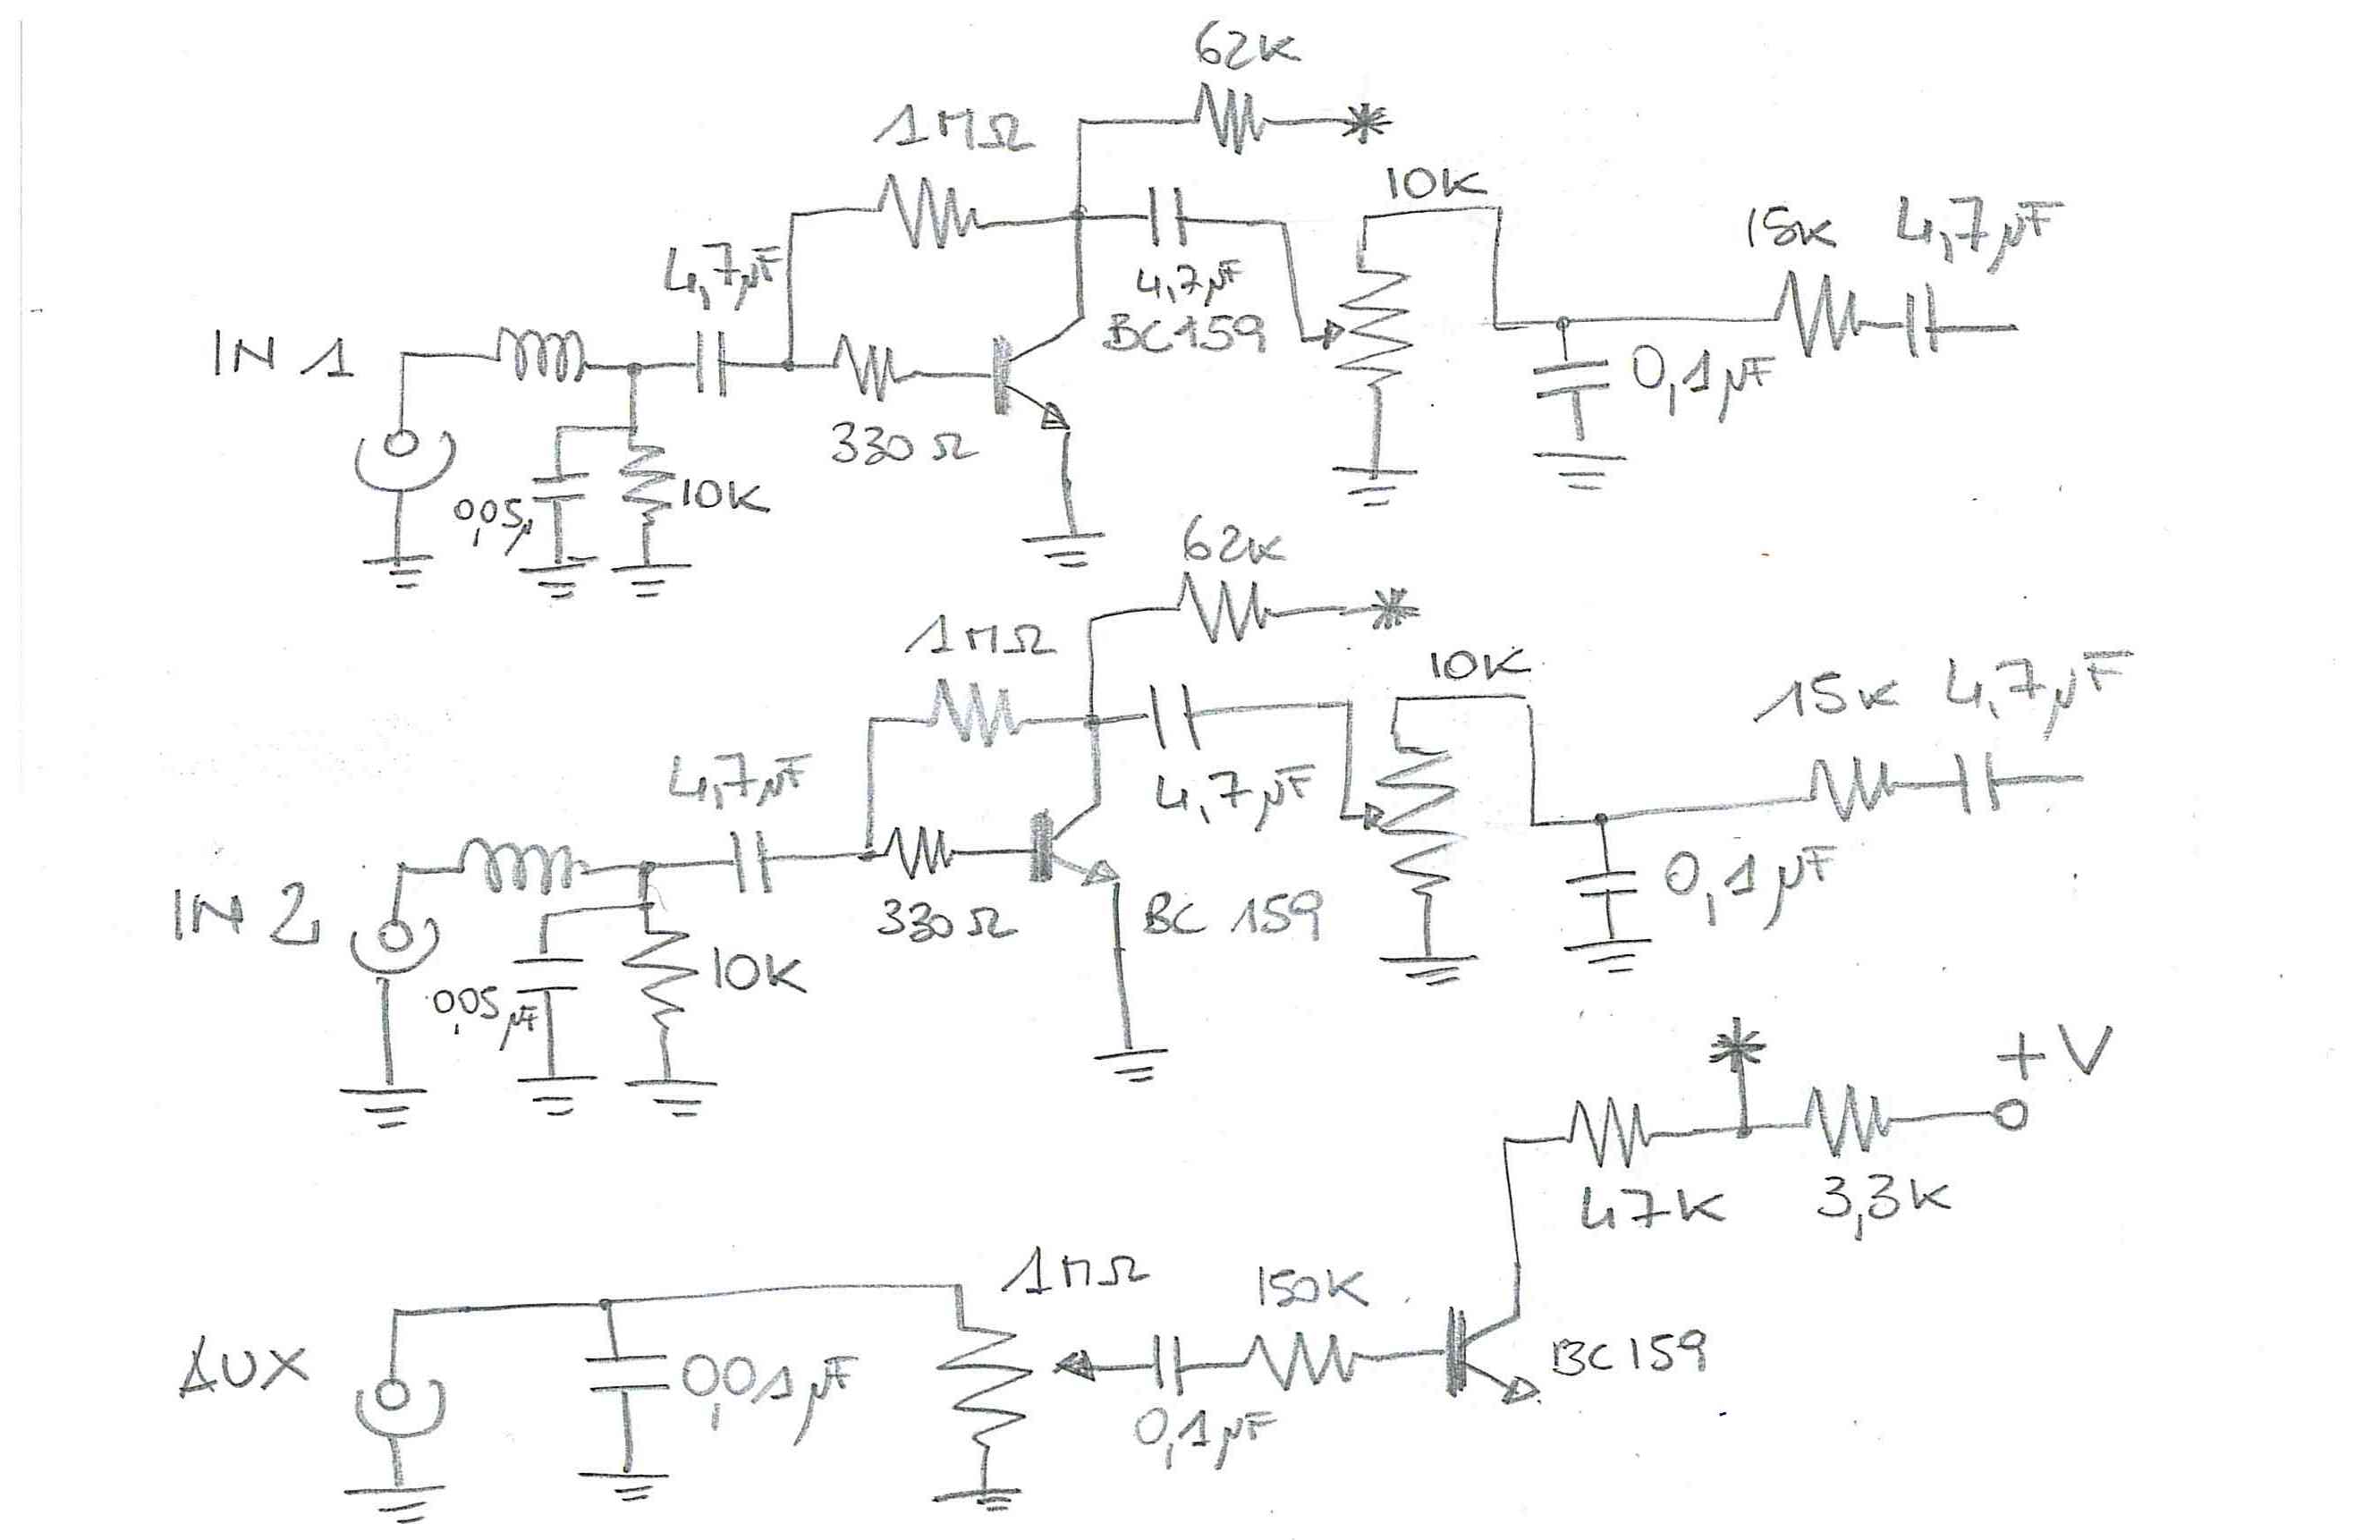 62K
1MΩ
10K
15K 4,7µF
4,7µF
4,7µF
BC159
IN 1
0,1µF
330Ω
0,05µ
10K
62K
1MΩ
10K
15K 4,7µF
4,7µF
4,7µF
0,1µF
IN 2
330Ω
BC 159
10K
0,05µF
+V
47K
3,3K
1MΩ
150K
BC159
AUX
0,01µF
0,1µF